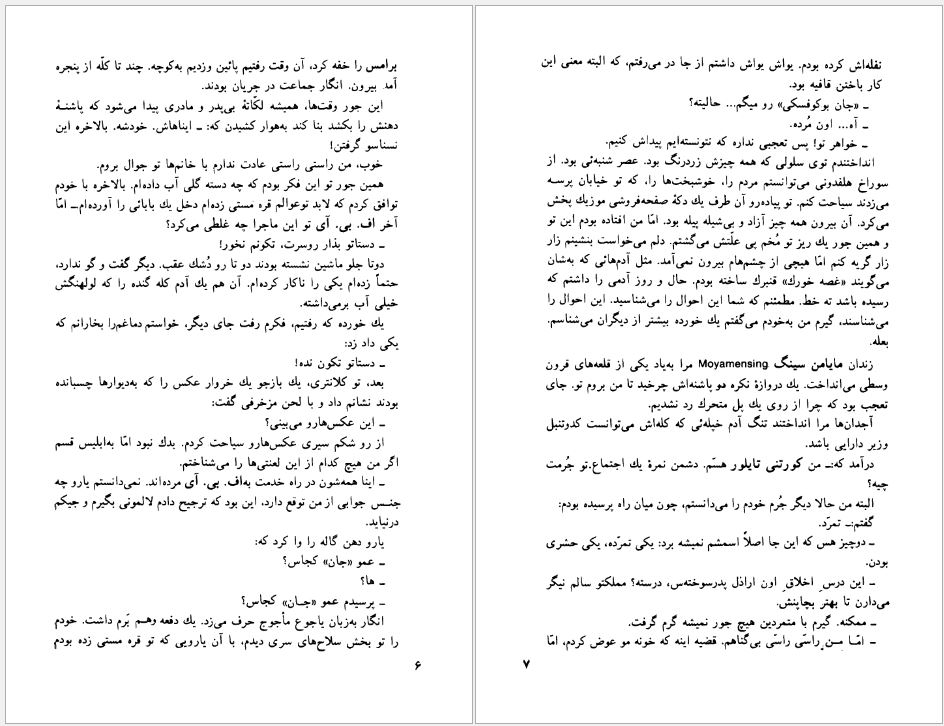 برامس را خفه کرد، آن وقت رفتیم پائین وزدیم به‌کوچه. چند تا کلّه از پنجره
آمد بیرون. انگار جماعت در جریان بودند.
این جور وقت‌ها، همیشه لکّاتهٔ بی‌پدر و مادری پیدا می‌شود که پاشنهٔ
دهنش را بکشد بنا کند به‌هوار کشیدن که: ـ ایناهاش. خودشه. بالاخره این
نسناسو گرفتن!
خوب، من راستی راستی عادت ندارم با خانم‌ها تو جوال بروم.
همین جور تو این فکر بودم که چه دسته گلی آب داده‌ام. بالاخره با خودم
توافق کردم که لابد توعوالم قره مستی زده‌ام دخل یك بابائی را آورده‌ام ــ امّا
آخر اف. بی. آی تو این ماجرا چه غلطی می‌کرد؟
ـ دستاتو بذار روسرت، تکونم نخور!
دوتا جلو ماشین نشسته بودند دو تا رو دُشك عقب. دیگر گفت و گو ندارد،
حتماً زده‌ام یکی را ناکار کرده‌ام. آن هم یك آدم کله گنده را که لولهنگش
خیلی آب برمی‌داشته.
یك خورده که رفتیم، فکرم رفت جای دیگر، خواستم دماغم‌را بخارانم که
یکی داد زد:
ـ دستاتو تکون نده!
بعد، تو کلانتری، یك بازجو یك خروار عکس را که به‌دیوارها چسبانده
بودند نشانم داد و با لحن مزخرفی گفت:
ـ این عکس‌هارو می‌بینی؟
از رو شکم سیری عکس‌هارو سیاحت کردم. بدك نبود امّا به‌ابلیس قسم
اگر من هیچ کدام از این لعنتی‌ها را می‌شناختم.
ـ اینا همه‌شون در راه خدمت به‌اف. بی. آی مرده‌اند. نمی‌دانستم یارو چه
جنس جوابی از من توقع دارد، این بود که ترجیح دادم لالمونی بگیرم و جیکم
درنیاید.
یارو دهن گاله را وا کرد که:
ـ عمو «جان» کجاس؟
ـ ها؟
ـ پرسیدم عمو «جـان» کجاس؟
انگار به‌زبان یاجوع مأجوج حرف می‌زد. یك دفعه وهم بَرم داشت. خودم
را تو بخش سلاح‌های سری دیدم، با آن یارویی که تو قره مستی زده بودم
۶
نفله‌اش کرده بودم. یواش یواش داشتم از جا در می‌رفتم، که البته معنی این
کار باختن قافیه بود.
ـ «جان بوکوفسکی» رو میگم... حالیته؟
ـ آه... اون مُرده.
ـ خواهر تو! پس تعجبی نداره که نتونسته‌ایم پیداش کنیم.
انداختندم توی سلولی که همه چیزش زردرنگ بود. عصر شنبه‌ئی بود. از
سوراخ هلفدونی می‌توانستم مردم را، خوشبخت‌ها را، که تو خیابان پرسه
می‌زدند سیاحت کنم. تو پیاده‌رو آن طرف یك دکهٔ صفحه‌فروشی موزیك پخش
می‌کرد. آن بیرون همه چیز آزاد و بی‌شیله پیله بود. امّا من افتاده بودم این تو
و همین جور یك ریز تو مُخم پی علّتش می‌گشتم. دلم می‌خواست بنشینم زار
زار گریه کنم امّا هیچی از چشم‌هام بیرون نمی‌آمد. مثل آدم‌هائی که به‌شان
می‌گویند «غصه خورك» قنبرك ساخته بودم. حال و روز آدمی را داشتم که
رسیده باشد ته خط. مطمئنم که شما این احوال را می‌شناسید. این احوال را
می‌شناسند، گیرم من به‌خودم می‌گفتم یك خورده بیشتر از دیگران می‌شناسم.
بعله.
زندان مایامن سینگ Moyamensing مرا به‌یاد یکی از قلعه‌های قرون
وسطی می‌انداخت. یك دروازهٔ نکره دو پاشنه‌اش چرخید تا من بروم تو. جای
تعجب بود که چرا از روی یك پل متحرك رد نشدیم.
آجدان‌ها مرا انداختند تنگ آدم خپله‌ئی که کله‌اش می‌توانست کدوتنبل
وزیر دارایی باشد.
درآمد که:ــ من کورتنی تایلور هسّم. دشمن نمرهٔ یك اجتماع.تو جُرمت
چیه؟
البته من حالا دیگر جُرم خودم را می‌دانستم، چون میان راه پرسیده بودم:
گفتم:ــ تمرّد.
ـ دوچیز هس که این جا اصلاً اسمشم نمیشه برد: یکی تمرّده، یکی حشری
بودن.
ـ این درسِ اخلاقِ اون اراذل پدرسوخته‌س، درسته؟ مملکتو سالم نیگر
می‌دارن تا بهتر بچاپنش.
ـ ممکنه. گیرم با متمردین هیچ جور نمیشه گرم گرفت.
ـ امّـا مـن راسّی راسّی بی‌گناهم. قضیه اینه که خونه مو عوض کردم، امّا
۷